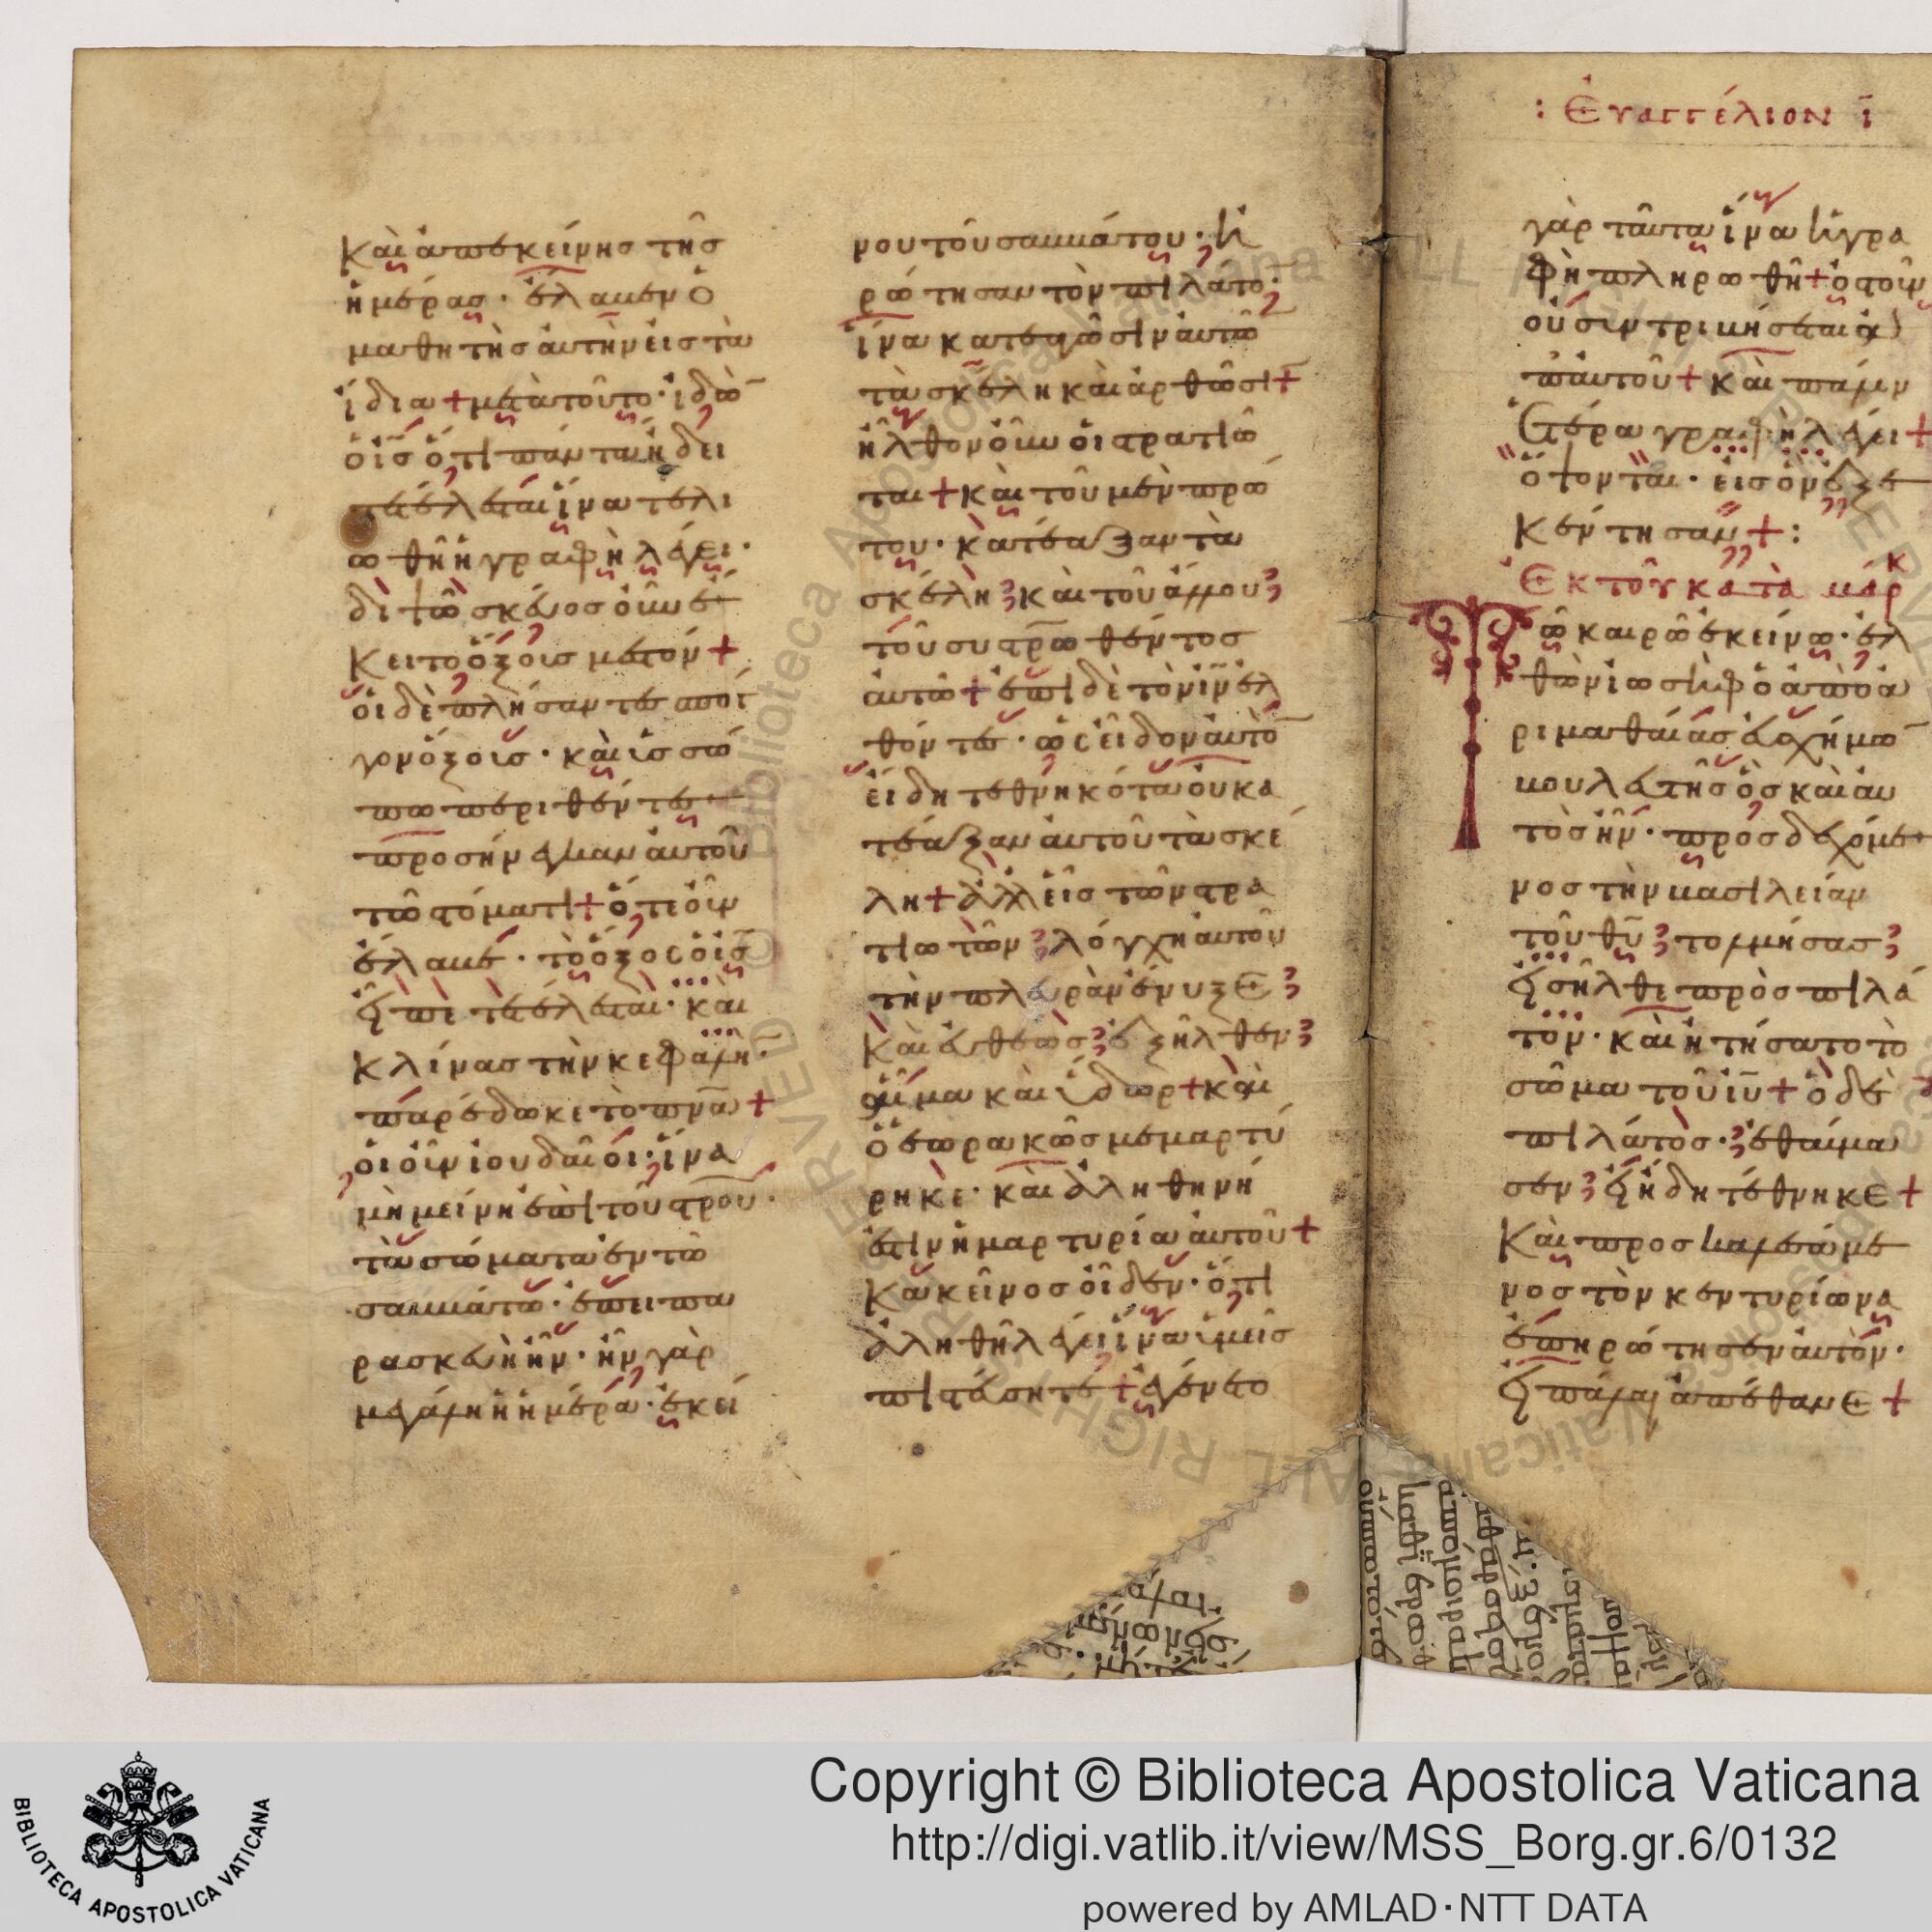 Καὶ ἀπ' ἐκείνης τῆς
ἡμέρας· ἔλαβεν ὁ
μαθητὴς αὐτὴν εἰς τὰ
ἴδια + μετὰ τοῦτο· ἰδὼ
ὁ ἰς ὅτι πάντα ἤδει
τετέλεσται ἵνα τελι
ωθῆ ἡ γραφὴ λέγει·
διψῶ σκεῦος οὖν ἔ
κειτο ὄξους μεστόν +
οἱ δὲ πλήσαντες σπόγ
γον ὄξους· καὶ ὑσσώ
πω περιθέντες
προσήνεγκαν αὐτοῦ
τῶ στόματι + ὅτε οὖν
ἔλαβε· τὸ ὄξος ὁ ις
εἶπε τετέλεσται· καὶ
κλίνας τὴν κεφαλὴ·
παρέδωκε τὸ πνα +
οἱ οὖν ἰουδαῖοι· ἵνα
μὴ μείνη ἐπὶ τοῦ στρου·
τὰ σώματα ἐν τῶ
σαββάτω· ἐπεὶ πα
ρασκευὴ ἦν· ἦν γὰρ
μεγάλη ἡ ἡμέρα· ἐκεί
νου τοῦ σαββάτου· ἠ
ρώτησαν τὸν πιλάτο·
ἵνα κατεαγῶσιν αὐτῶ
τὰ σκέλη καὶ ἀρθῶσι +
ἦλθον οὖν οἱ στρατιῶ
ται + καὶ τοῦ μὲν πρώ
του· κατέαξαν τὰ
σκέλη καὶ τοῦ ἄλλου
τοῦ συστρωθέντος
αὐτῶ + ἐπὶ δὲ τὸν ιν ἐλ
θόντες· ὡς εἶδον αὐτὸ
εἴδη τεθνηκότα οὐ κα
τέαξαν αὐτοῦ τὰ σκέ
λη + ἀλλ' εἷς τῶν στρα
τιωτῶν λόγχη αὐτοῦ
τὴν πλευρὰν ἔνυξε
Καὶ εὐθέως ἐξῆλθεν
αἷμα καὶ ὕδωρ + καὶ
ὁ ἑωρακὼς μεμαρτύ
ρηκε· καὶ ἀληθηνή
ἐστιν ἡ μαρτυρία αὐτοῦ +
Κἀκεῖνος οἶδεν· ὅτι
ἀληθῆ λέγει ἵνα ὑμεῖς
πιστεύσητε + ἐγένετο
: Εὐαγγέλιον ι
γὰρ ταῦτα ἵνα ἡ γρα
φὴ πληρωθῆ + ὀστοῦν
οὐ συντριβήσεται ἀ
π' αὐτοῦ + καὶ πάλιν
Ἑτέρα γραφὴ λέγει +
ὄψονται· εἰς ὃν ἐξε
κέντησαν + :
Ἐκ τοῦ κατὰ μάρκ
Τῶ καιρῶ ἐκείνω· ἐλ
θὼν ἰωσὴφ ὁ ἀπὸ ἀ
ριμαθαίας εὐσχήμω
βουλευτὴς ὃς καὶ αὐ
τὸς ἦν· προσδεχόμε
νος τὴν βασιλείαν
τοῦ θυ τολμήσας
εἰσῆλθε πρὸς πιλά
τον· καὶ ἠτήσατο τὸ
σῶμα τοῦ ιυ + ὁ δὲ
πιλάτος· ἐθαύμα
σεν εἰ ἤδη τέθνηκε +
Καὶ προσκαλεσάμε
νος τὸν κεντυρίωνα
ἐπηρώτησεν αὐτὸν·
εἰ πάλαι ἀπέθανε +
Copyright © Biblioteca Apostolica Vaticana
http://digi.vatlib.it/view/MSS_Borg.gr.6/0132
powered by AMLAD·NTT DATA
BIBLIOTECA APOSTOLICA VATICANA